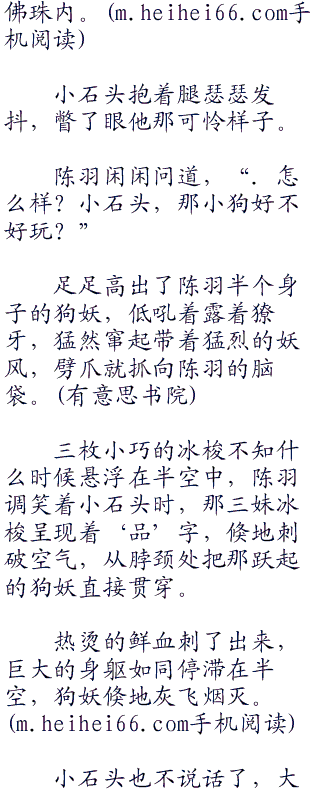 佛珠内。(m.heihei66.com手
机阅读)
小石头抱着腿瑟瑟发
抖，瞥了眼他那可怜样子。
陈羽闲闲问道，“．怎
么样？小石头，那小狗好不
好玩？”
足足高出了陈羽半个身
子的狗妖，低吼着露着獠
牙，猛然窜起带着猛烈的妖
风，劈爪就抓向陈羽的脑
袋。(有意思书院)
三枚小巧的冰梭不知什
么时候悬浮在半空中，陈羽
调笑着小石头时，那三妹冰
梭呈现着‘品’字，倏地刺
破空气，从脖颈处把那跃起
的狗妖直接贯穿。
热烫的鲜血刺了出来，
巨大的身躯如同停滞在半
空，狗妖倏地灰飞烟灭。
(m.heihei66.com手机阅读)
小石头也不说话了，大